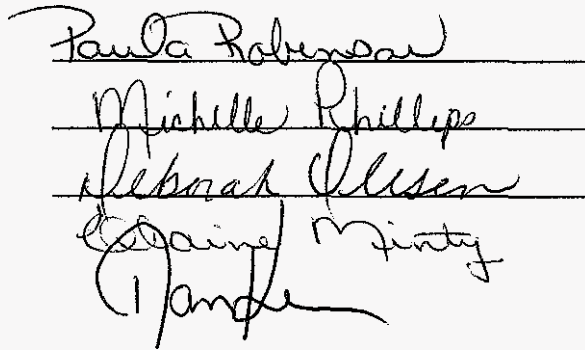 Paula Robinson
Michelle Phillips
Deborah Olesen
Elaine Minty